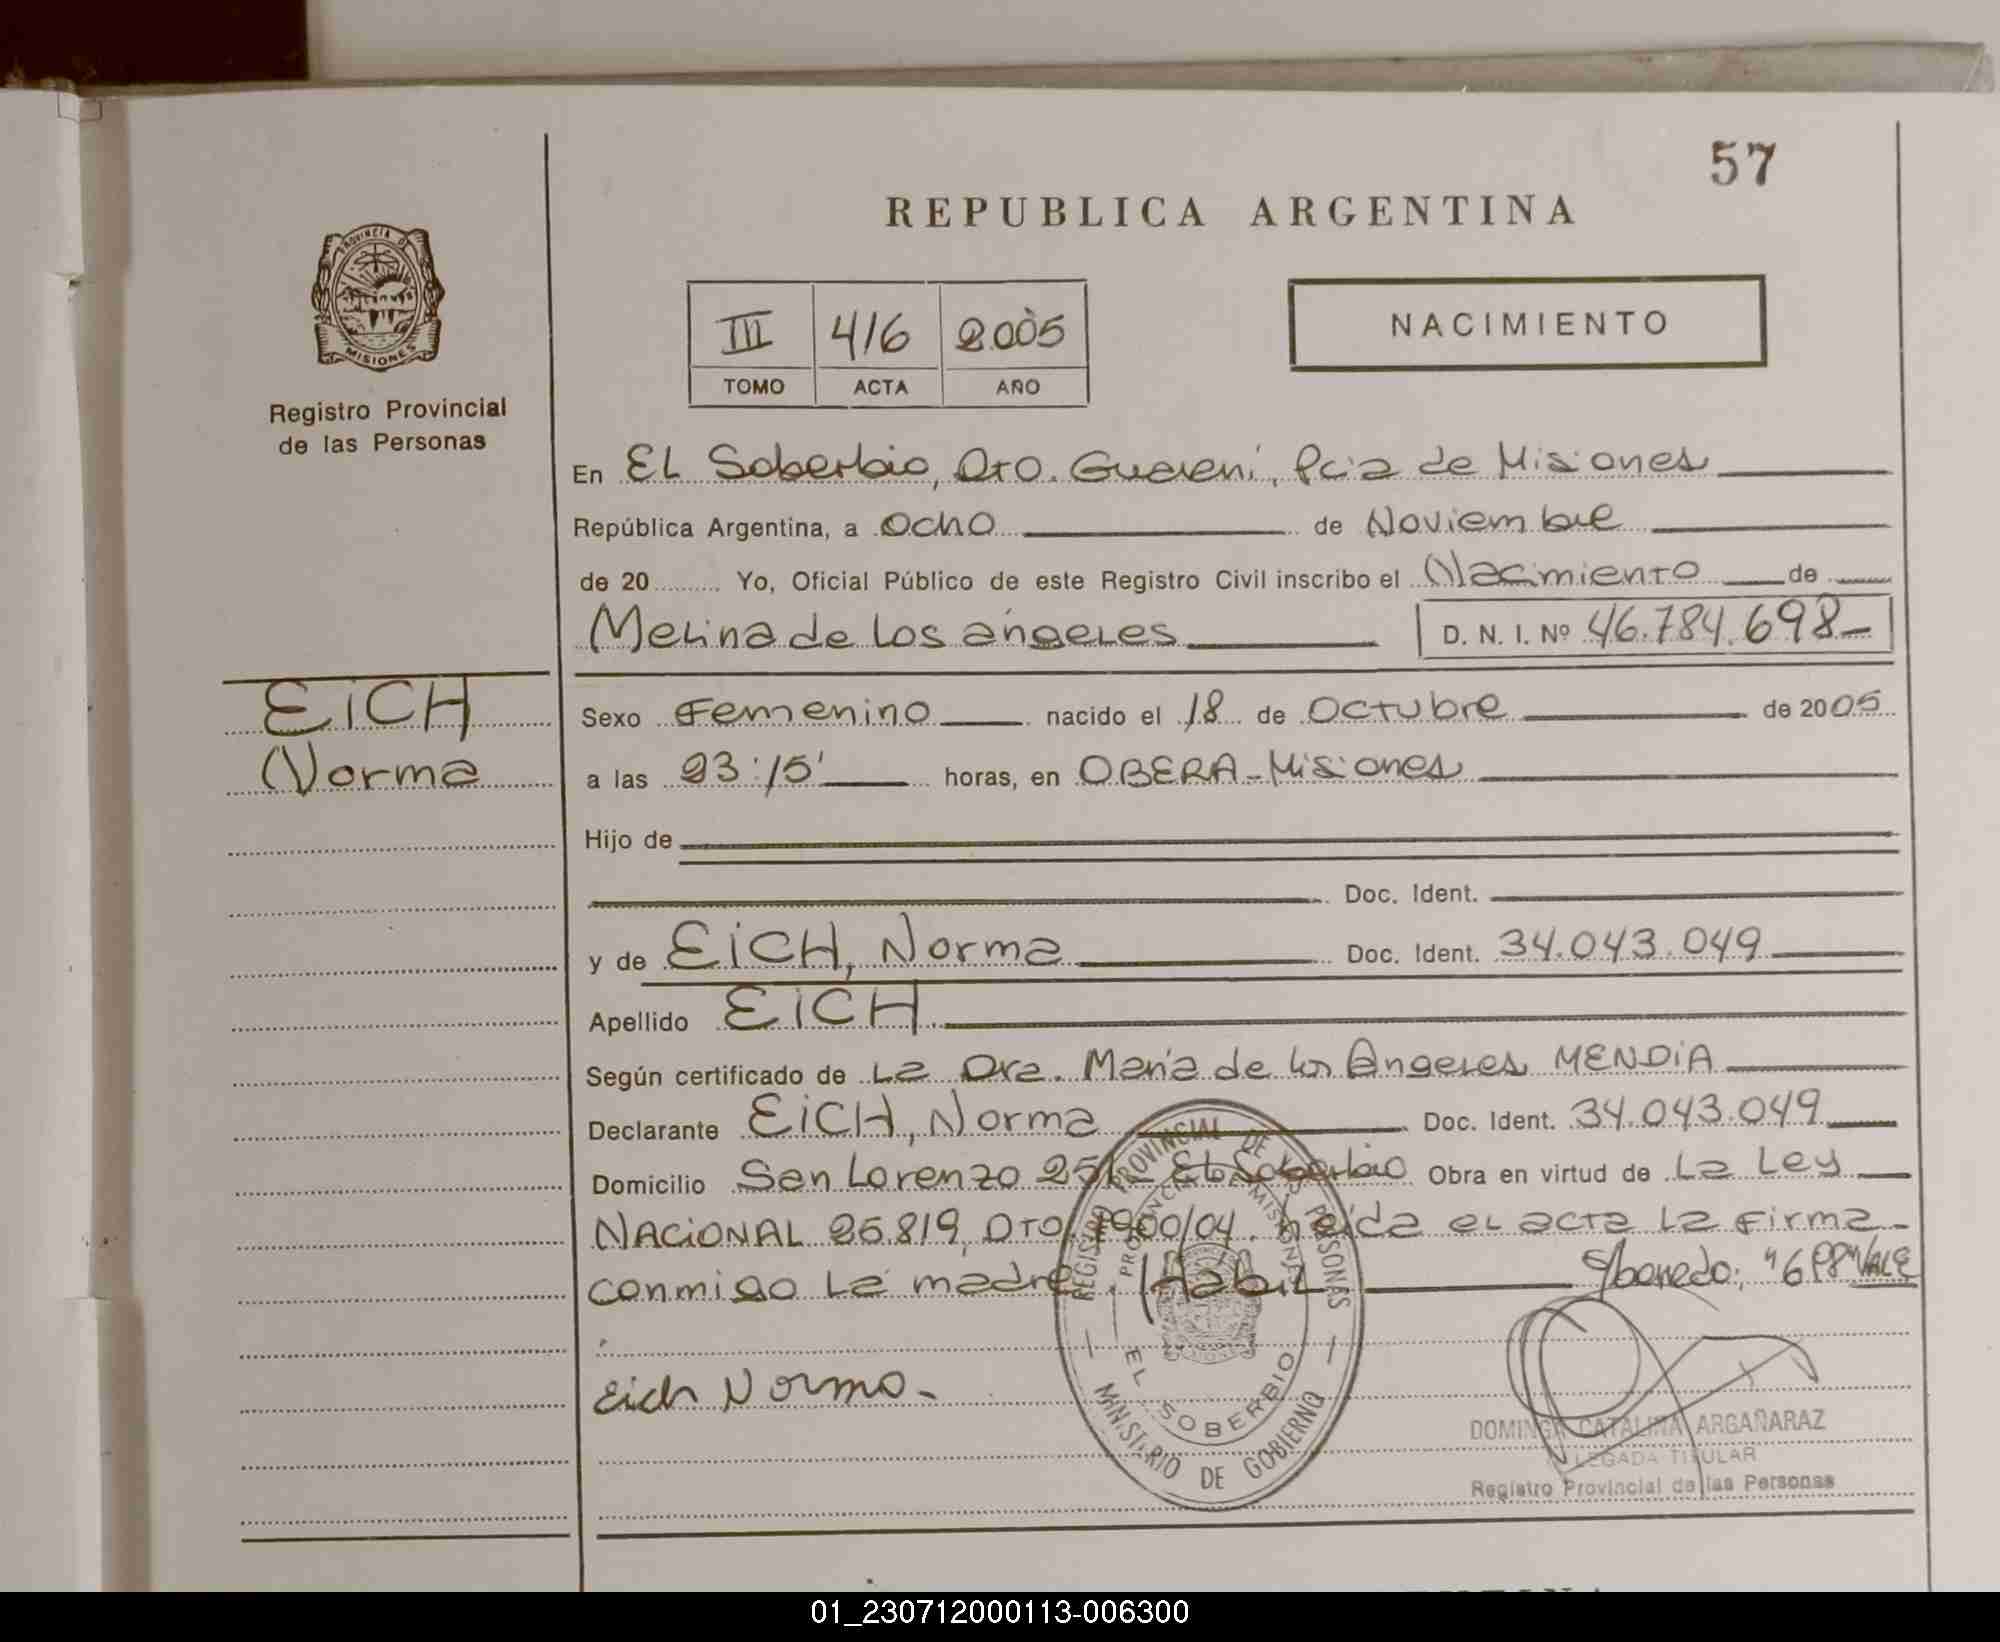 57
REPUBLICA ARGENTINA
PROVINCIA DE
MISIONES
Registro Provincial
de las Personas
III 416 2005
TOMO ACTA AÑO
NACIMIENTO
En EL Soberbio, Dto. Guaraní, Pcia de Misiones
República Argentina, a ocho de Noviembre
de 20 Yo, Oficial Público de este Registro Civil inscribo el Nacimiento de
Melina de Los angeles D. N. I. Nº 46.784.698-
EiCH
Norma
Sexo Femenino nacido el 18 de Octubre de 2005
a las 23:15' horas, en OBERA-Misiones
Hijo de
Doc. Ident.
y de EiCH, Norma Doc. Ident. 34.043.049
Apellido EiCH
Según certificado de La Dra. María de los Angeles MENDiA
Declarante EiCH, Norma Doc. Ident. 34.043.049
Domicilio San Lorenzo 251- EL Soberbio Obra en virtud de La Ley
NACiONAL 25.819, DTO. 1900/04. Leída el acta La Firma
conmigo La madre. Hábil S/borrado; "698" VALE
Eich Norma.-
REGISTRO PROVINCIAL DE LAS PERSONAS
PROVINCIA DE MISIONES
EL SOBERBIO
MINISTERIO DE GOBIERNO
DOMINGA CATALINA ARGAÑARAZ
DELEGADA TITULAR
Registro Provincial de las Personas
01_230712000113-006300